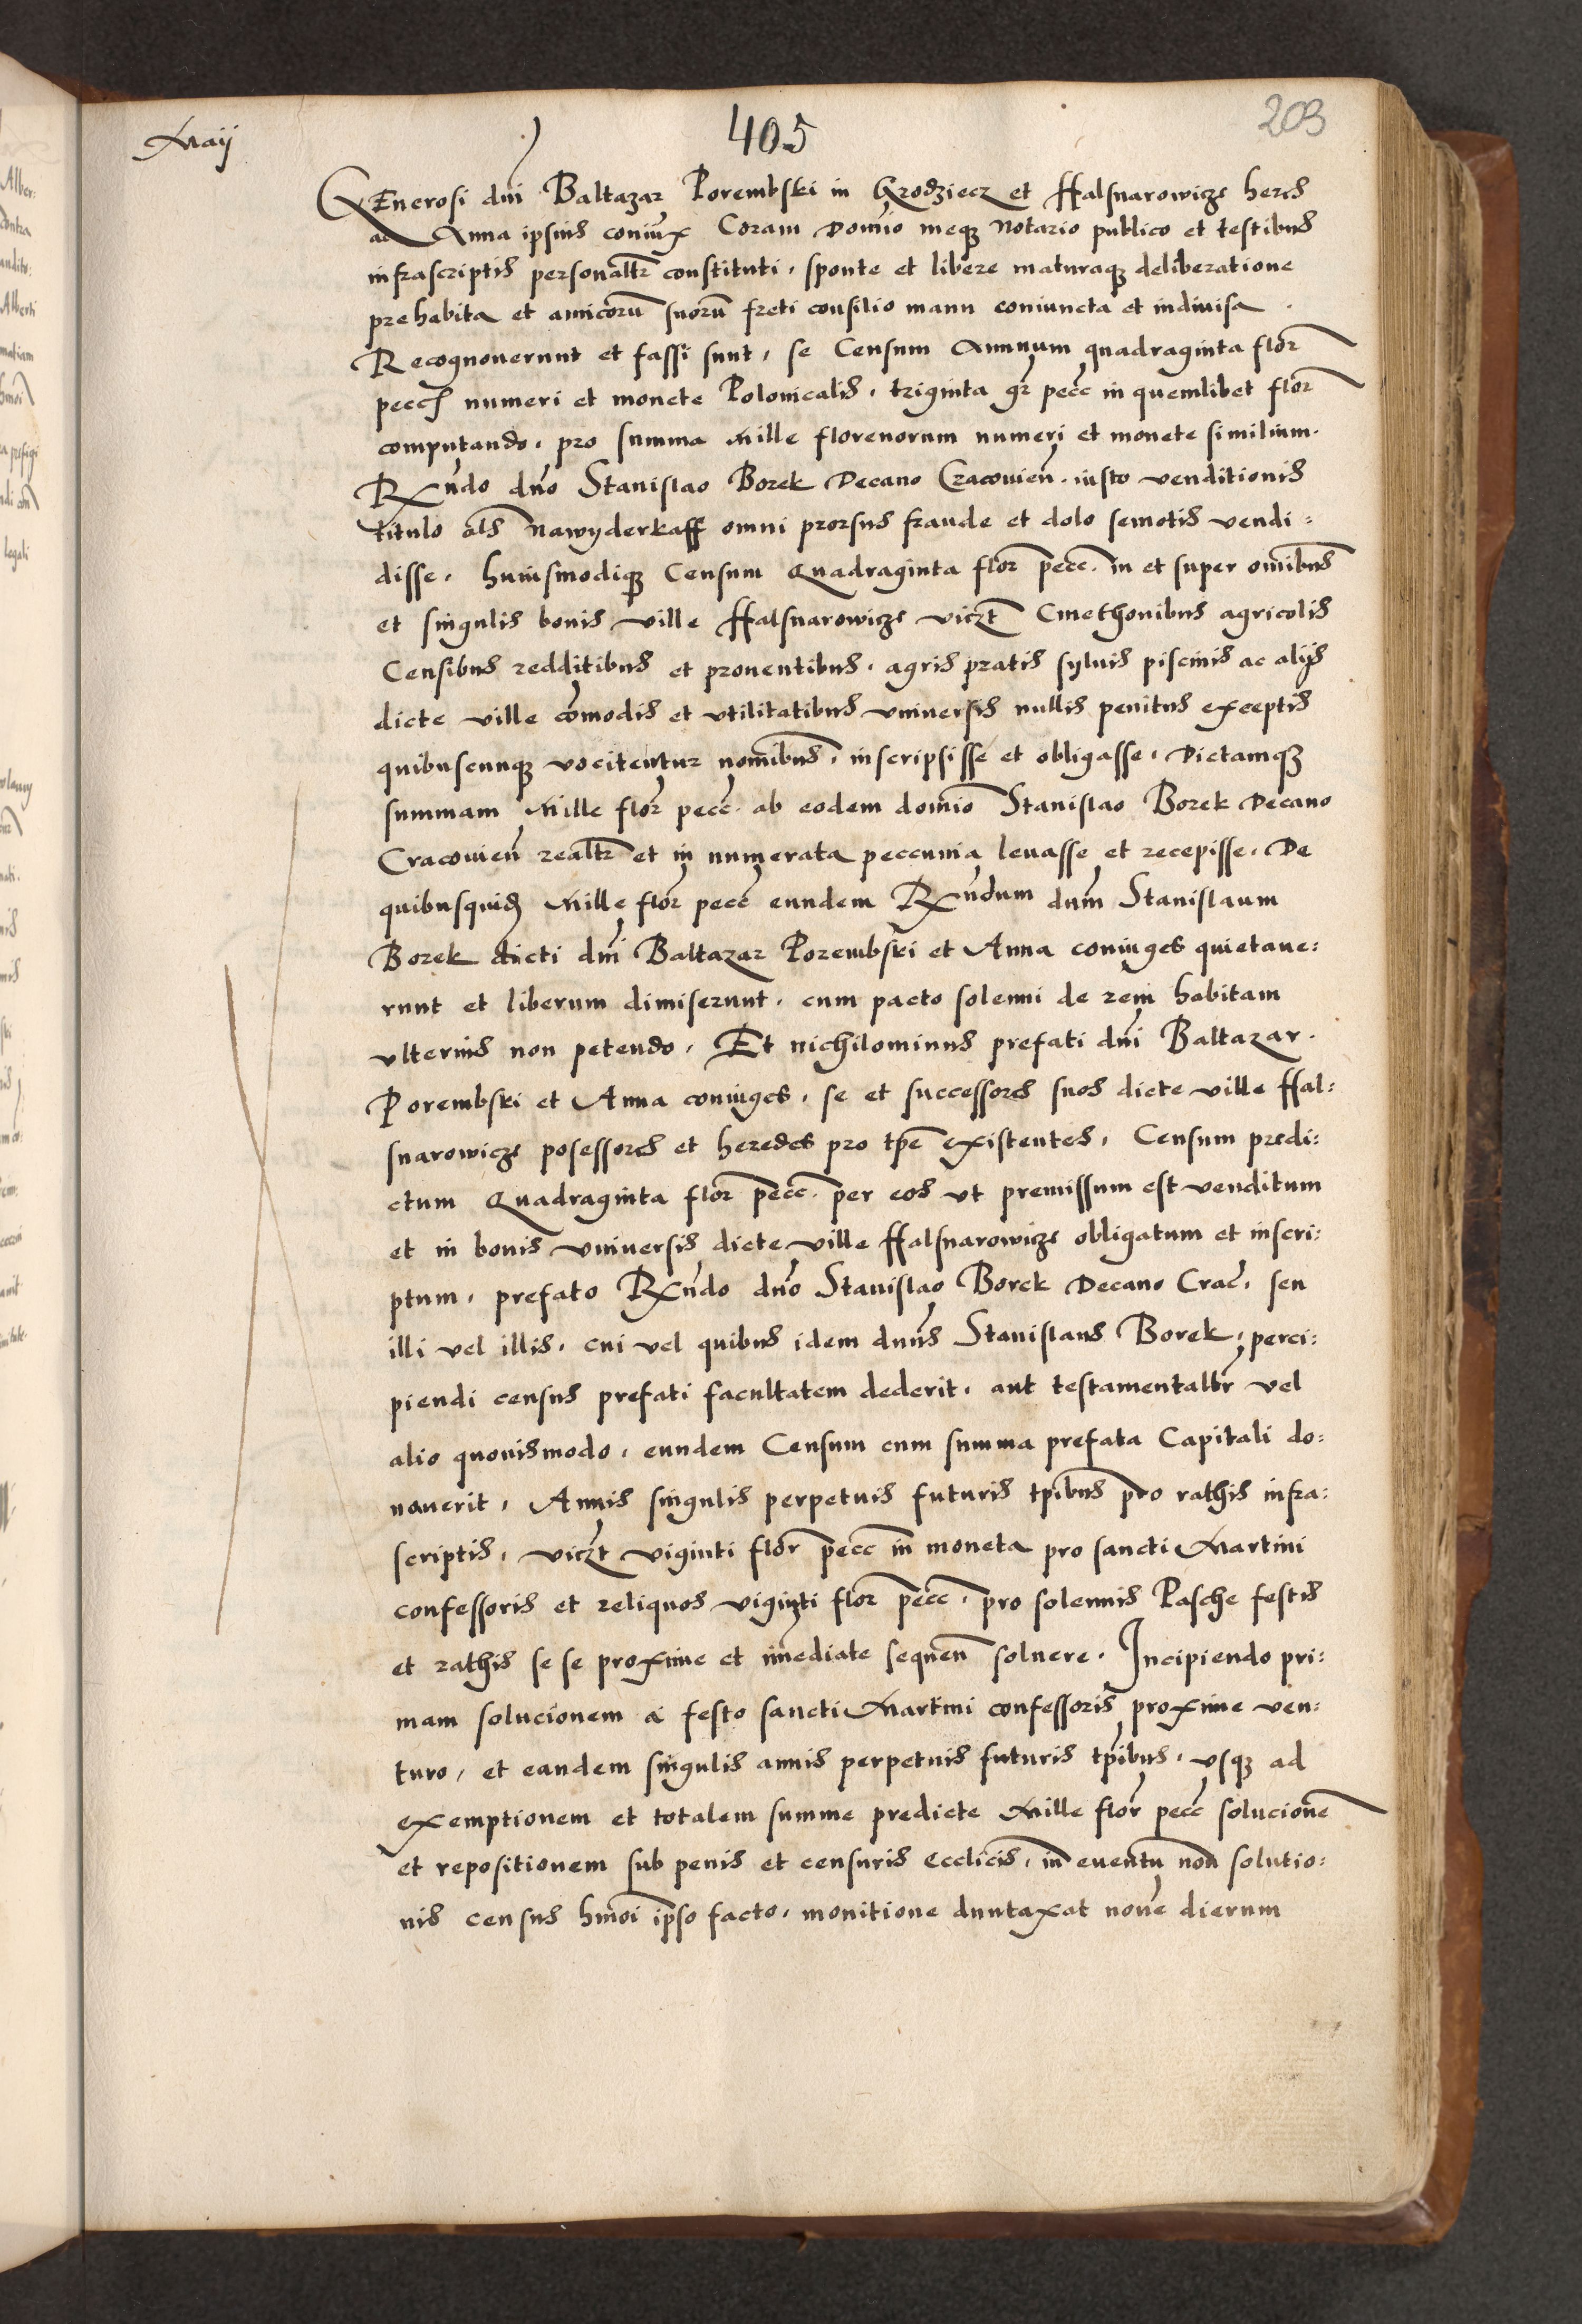 Maij
405
203
GEnerosi dni Baltazar Porembski in Grodziecz et Halsnarowicze heres
ac Anna ipsius coniux Coram Domino meque Notario publico et testibus
infrascriptis personaltr constituti, sponte et libere maturaque deliberatione
prehabita et amicorum suorum freti consilio manu coniuncta et indiuisa.
Recognouerunt et fassi sunt, se Censum Annuum quadraginta flor
pecc numeri et monete Polonicalis, triginta gr pecc in quemlibet flor
computando, pro summa Mille florenorum numeri et monete similium.
Rndo dno Stanislao Borek Decano Cracouien. iusto venditionis
titulo als nawyderkaff omni prorsus fraude et dolo semotis vendi:
disse, huiusmodique Censum Quadraginta flor pecc. in et super omibus
et singulis bonis ville Halsnarowicze viczt Cmethonibus agricolis
Censibus redditibus et prouentibus, agris pratis syluis piscinis ac alijs
dicte ville comodis et vtilitatibus vniuersis nullis penitus exceptis
quibuscunque vocitentur nomibus, inscripsisse et obligasse, Dictamque
summam Mille flor pecc. ab eodem domino Stanislao Borek Decano
Cracouien realtr et in numerata peccunia leuasse et recepisse. De
quibusquid Mille flor pecc eundem Rndum dum Stanislaum
Borek dicti dni Baltazar Porembski et Anna coniuges quietaue:
runt et liberum dimiserunt, cum pacto solenni de rem habitam
vlterius non petendo. Et nichilominus prefati dni Baltazar.
Porembski et Anna coniuges, se et successores suos dicte ville Hal:
snarowicze posessores et heredes pro tpe existentes, Censum predi:
ctum Quadraginta flor pecc. per eos vt premissum est venditum
et in bonis vniuersis dicte ville Halsnarowicze obligatum et inscri:
ptum, prefato Rndo dno Stanislao Borek Decano Crac. seu
illi vel illis, cui vel quibus idem dnus Stanislaus Borek, perci:
piendi census prefati facultatem dederit, aut testamentaltr vel
alio quouismodo, eundem Censum cum summa prefata Capitali do:
nauerit, Annis singulis perpetuis futuris tpibus pro rathis infra:
scriptis, viczt viginti flor pecc in moneta pro sancti Martini
confessoris et reliquos viginti flor pecc. pro solennis Pasche festis
et rathis se se proxime et imediate sequen soluere. Incipiendo pri:
mam solucionem a festo sancti Martini confessoris proxime ven:
turo, et eandem singulis annis perpetuis futuris tpibus, vsque ad
exemptionem et totalem summe predicte Mille flor pecc solucione
et repositionem sub penis et censuris ecclicis, in euentu non solutio:
nis census hmoi ipso facto, monitione duntaxat noue dierum